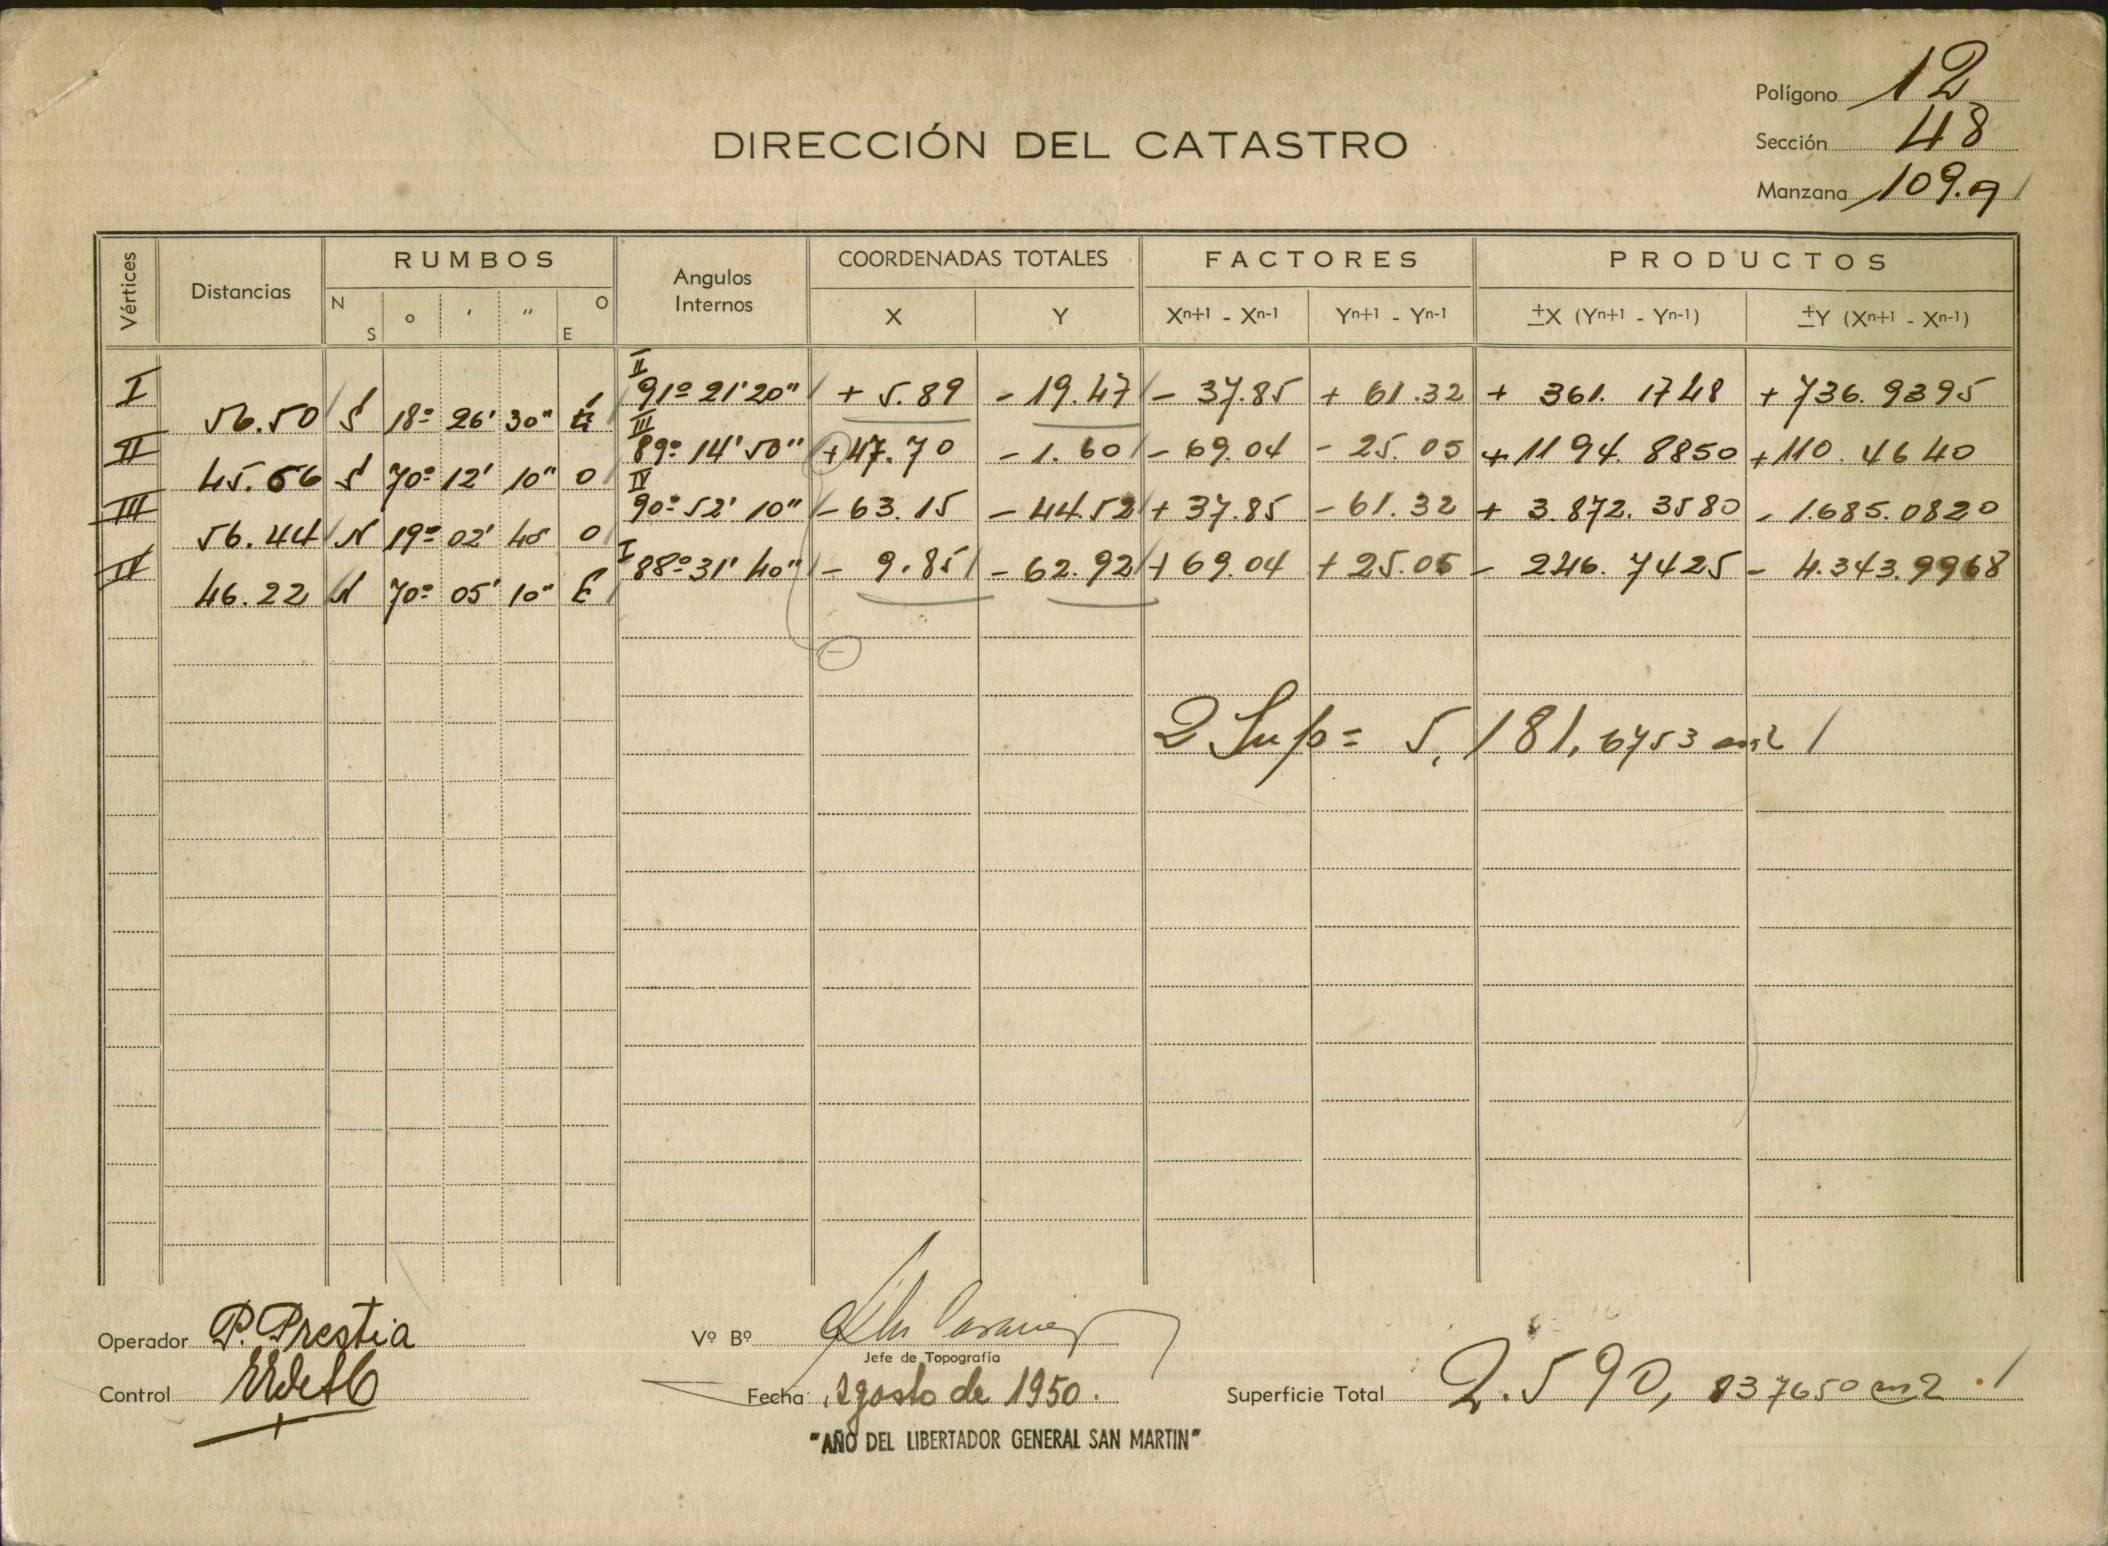 Polígono 12
DIRECCIÓN DEL CATASTRO
Sección 48
Manzana 109.a
Vértices Distancias RUMBOS Angulos Internos COORDENADAS TOTALES FACTORES PRODUCTOS
N S o ' " O E X Y Xn+1 - Xn-1 Yn+1 - Yn-1 ±X (Yn+1 - Yn-1) ±Y (Xn+1 - Xn-1)
I II 91º 21' 20" + 5.89 - 19.47 - 37.85 + 61.32 + 361.1748 + 736.9395
56.50 S 18º 26' 30" E
II III 89º 14' 50" + 47.70 - 1.60 - 69.04 - 25.05 + 1194.8850 + 110.4640
45.66 S 70º 12' 10" O
III IV 90º 52' 10" - 63.15 - 44.52 + 37.85 - 61.32 + 3.872.3580 - 1.685.0820
56.44 N 19º 02' 40 O
IV I 88º 31' 40" - 9.85 - 62.92 + 69.04 + 25.05 - 246.7425 - 4.343.9968
46.22 N 70º 05' 10" E
-
2 Sup = 5.181,6753 m2
Operador P. Prestia
Vº Bº
Jefe de Topografía
Control
Fecha Agosto de 1950.
Superficie Total 2.590,837650 m2.
"AÑO DEL LIBERTADOR GENERAL SAN MARTIN"